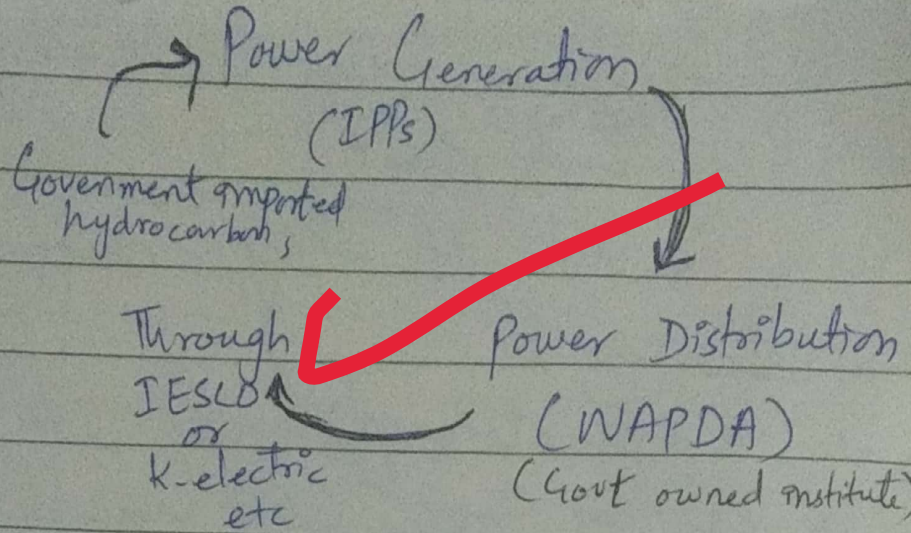 Power Generation
(IPPs)
Govenment imported
hydrocarbons,
Through
IESCO
or
k-electric
etc
Power Distribution
(WAPDA)
(Govt owned institute)